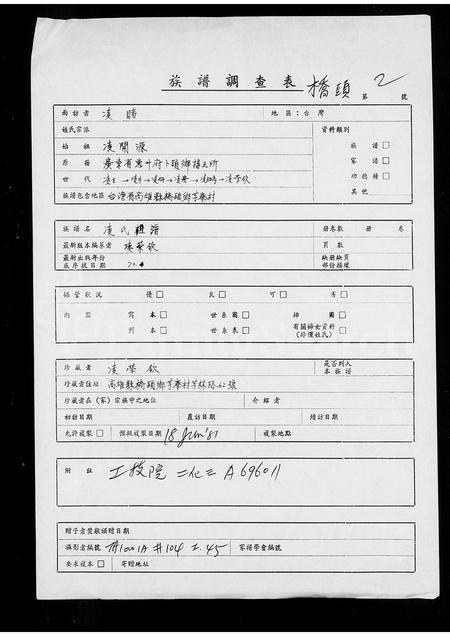 族譜調查表 橋頭 第 2 號
面訪者 凌 地區：台灣
姓氏宗派 資料類別
始祖 凌開源 族譜□
原籍 廣東省惠州府 家譜□
世代 功德榜□
族譜包含地區 台灣省高雄縣橋頭鄉芋寮村 其他
族譜名 凌氏祖譜 册卷數 册 卷
最新版本編纂者 凌榮欽 頁數
最新出版年份 缺册缺頁
或序拔日期 部份損壞
保管狀況 優□ 良□ 可□ 害□
內容 寫本□ 世系圖□ 揷圖□
刋本□ 世系表□ 有關婦女資料□
(非僅姓氏)
珍藏者 凌榮欽 是否列入
本族譜
珍藏者住址 高雄縣橋頭鄉芋寮村芋林路62號
珍藏者在（家）宗族中之地位 介紹者
初訪日期 覆訪日期 續訪日期
允許複製□ 預擬複製日期 18 Jun '81 複製地點
附註 工技院 二化三 A696011
贈予者獎狀頒贈日期
攝影者編號 #104 I.45 家譜學會編號
要求複本□ 寄贈地址